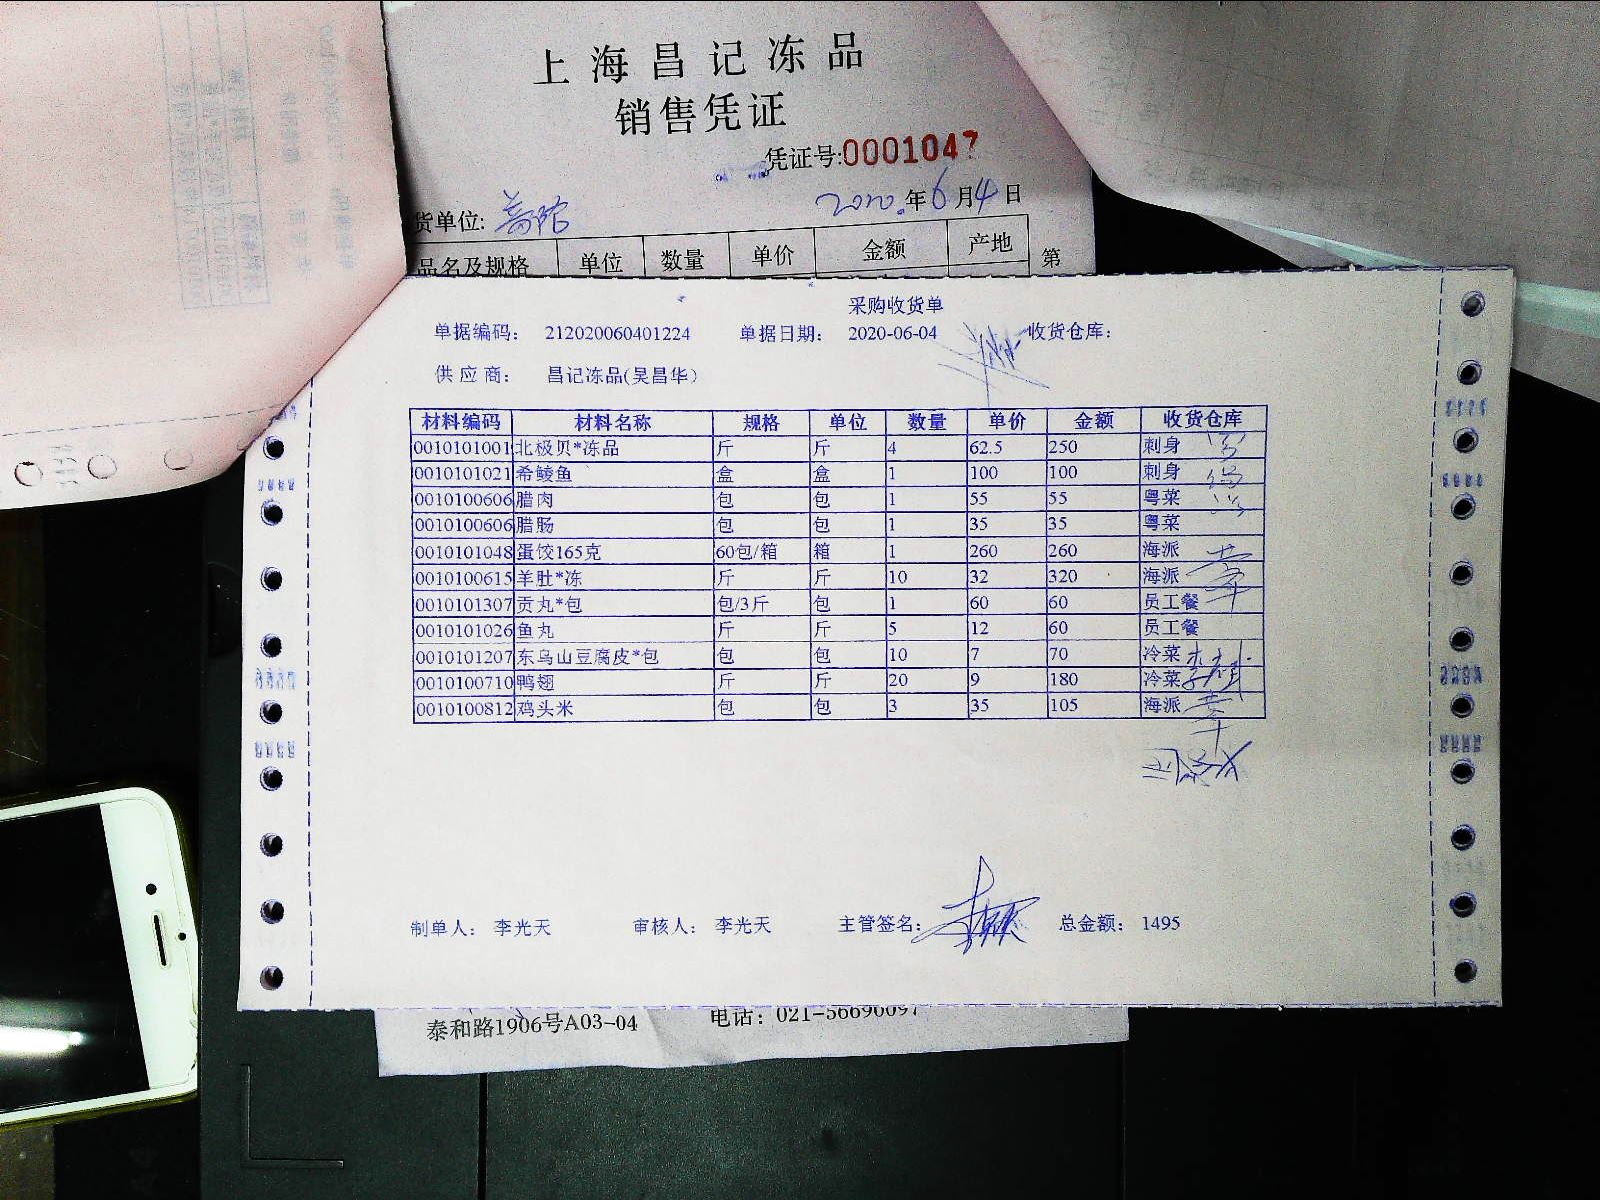 上海昌记冻品
销售凭证
凭证号:0001047
2020.年6月4日
货单位: 普陀
品名及规格 单位 数量 单价 金额 产地 第
采购收货单
单据编码: 212020060401224 单据日期: 2020-06-04 收货仓库:
供应商: 昌记冻品(吴昌华)
材料编码 材料名称 规格 单位 数量 单价 金额 收货仓库
0010101001 北极贝*冻品 斤 斤 4 62.5 250 刺身
0010101021 希鲮鱼 盒 盒 1 100 100 刺身
0010100606 腊肉 包 包 1 55 55 粤菜
0010100606 腊肠 包 包 1 35 35 粤菜
0010101048 蛋饺165克 60包/箱 箱 1 260 260 海派
0010100615 羊肚*冻 斤 斤 10 32 320 海派
0010101307 贡丸*包 包/3斤 包 1 60 60 员工餐
0010101026 鱼丸 斤 斤 5 12 60 员工餐
0010101207 东乌山豆腐皮*包 包 包 10 7 70 冷菜
0010100710 鸭翅 斤 斤 20 9 180 冷菜
0010100812 鸡头米 包 包 3 35 105 海派
制单人: 李光天 审核人: 李光天 主管签名: 总金额: 1495
泰和路1906号A03-04 电话: 021-56690097